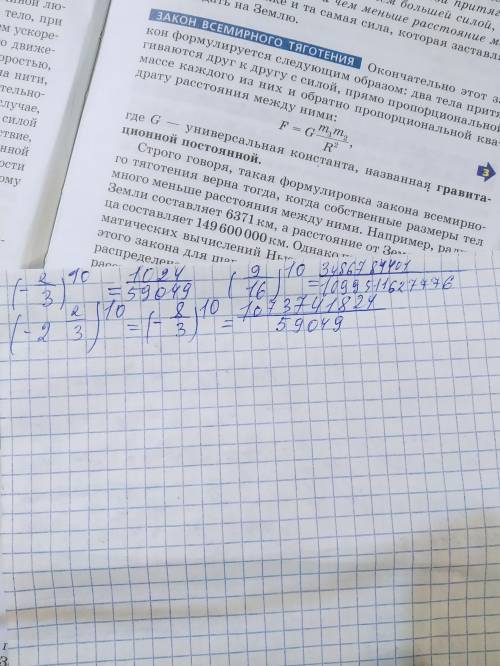 анной лю-
тело, при
ем ускоре-
о движе-
оростью,
на нити,
ательно-
случае,
силой
ствие,
нной
ости
ому
большей силой,
чем меньше расстояние м
же и та самая сила, которая заставля
дать на Землю.
ЗАКОН ВСЕМИРНОГО ТЯГОТЕНИЯ Окончательно этот за
кон формулируется следующим образом: два тела притя
гиваются друг к другу с силой, прямо пропорционально
массе каждого из них и обратно пропорциональной ква-
драту расстояния между ними:
F = G m₁m₂/R²,
где G — универсальная константа, названная гравита-
ционной постоянной.
3
Строго говоря, такая формулировка закона всемирно-
го тяготения верна тогда, когда собственные размеры тел
много меньше расстояния между ними. Например, ради
Земли составляет 6371 км, а расстояние от Зем
ца составляет 149 600 000 км. Однако
матических вычислений Нью
этого закона для шар
распределен
(-2/3)^10 = 1024/59049 (9/16)^10 = 3486784401/1099511627776
(-2 2/3)^10 = (-8/3)^10 = 1073741824/59049